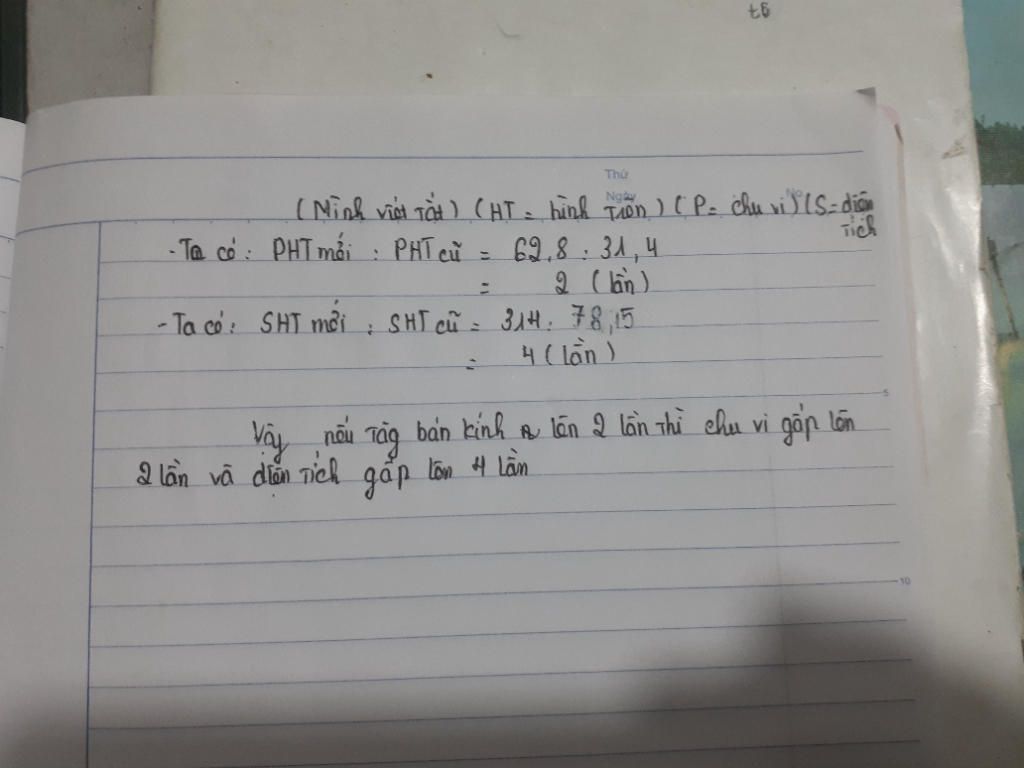 Thứ
Ngày
No
(Mình viết tắt) (HT = hình tròn) (P = chu vi) (S = diện
tích
- Ta có: PHT mới : PHT cũ = 62,8 : 31,4
= 2 (lần)
- Ta có: SHT mới : SHT cũ = 314 : 78,15
= 4 (lần)
5
Vậy nếu tăg bán kính lên 2 lần thì chu vi gấp lên
2 lần và diện tích gấp lên 4 lần
10